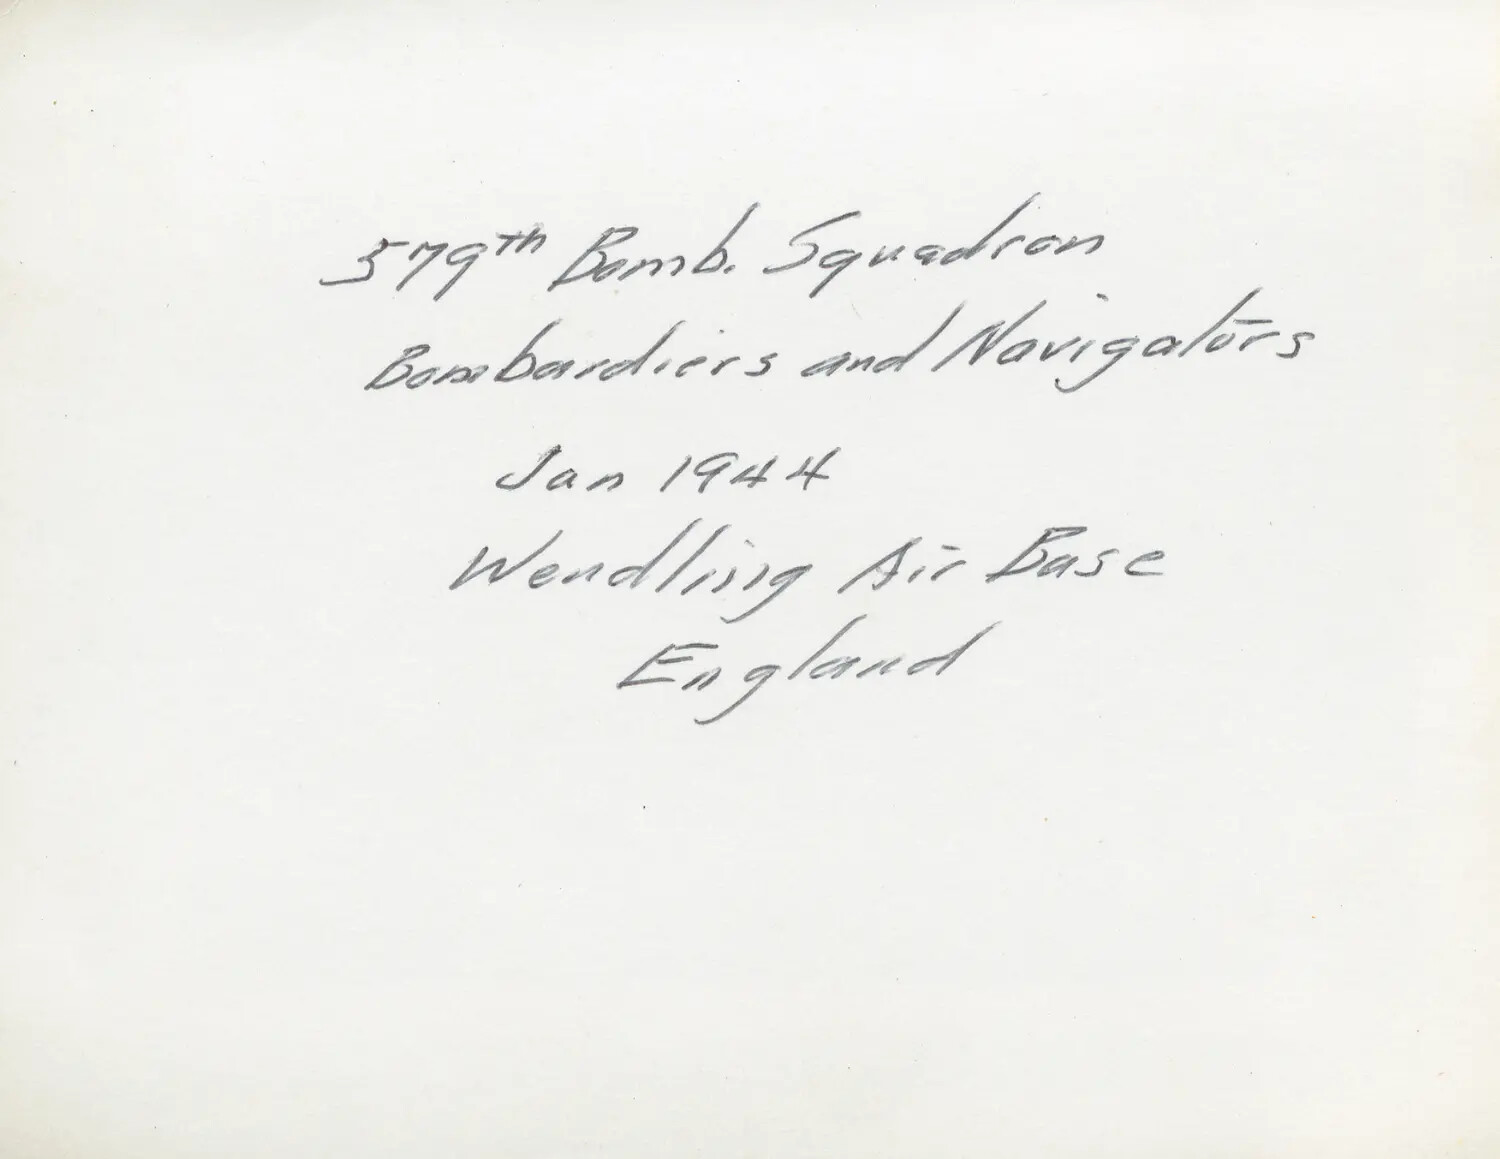 579th Bomb. Squadron
Bombardiers and Navigators
Jan 1944
Wendling Air Base
England